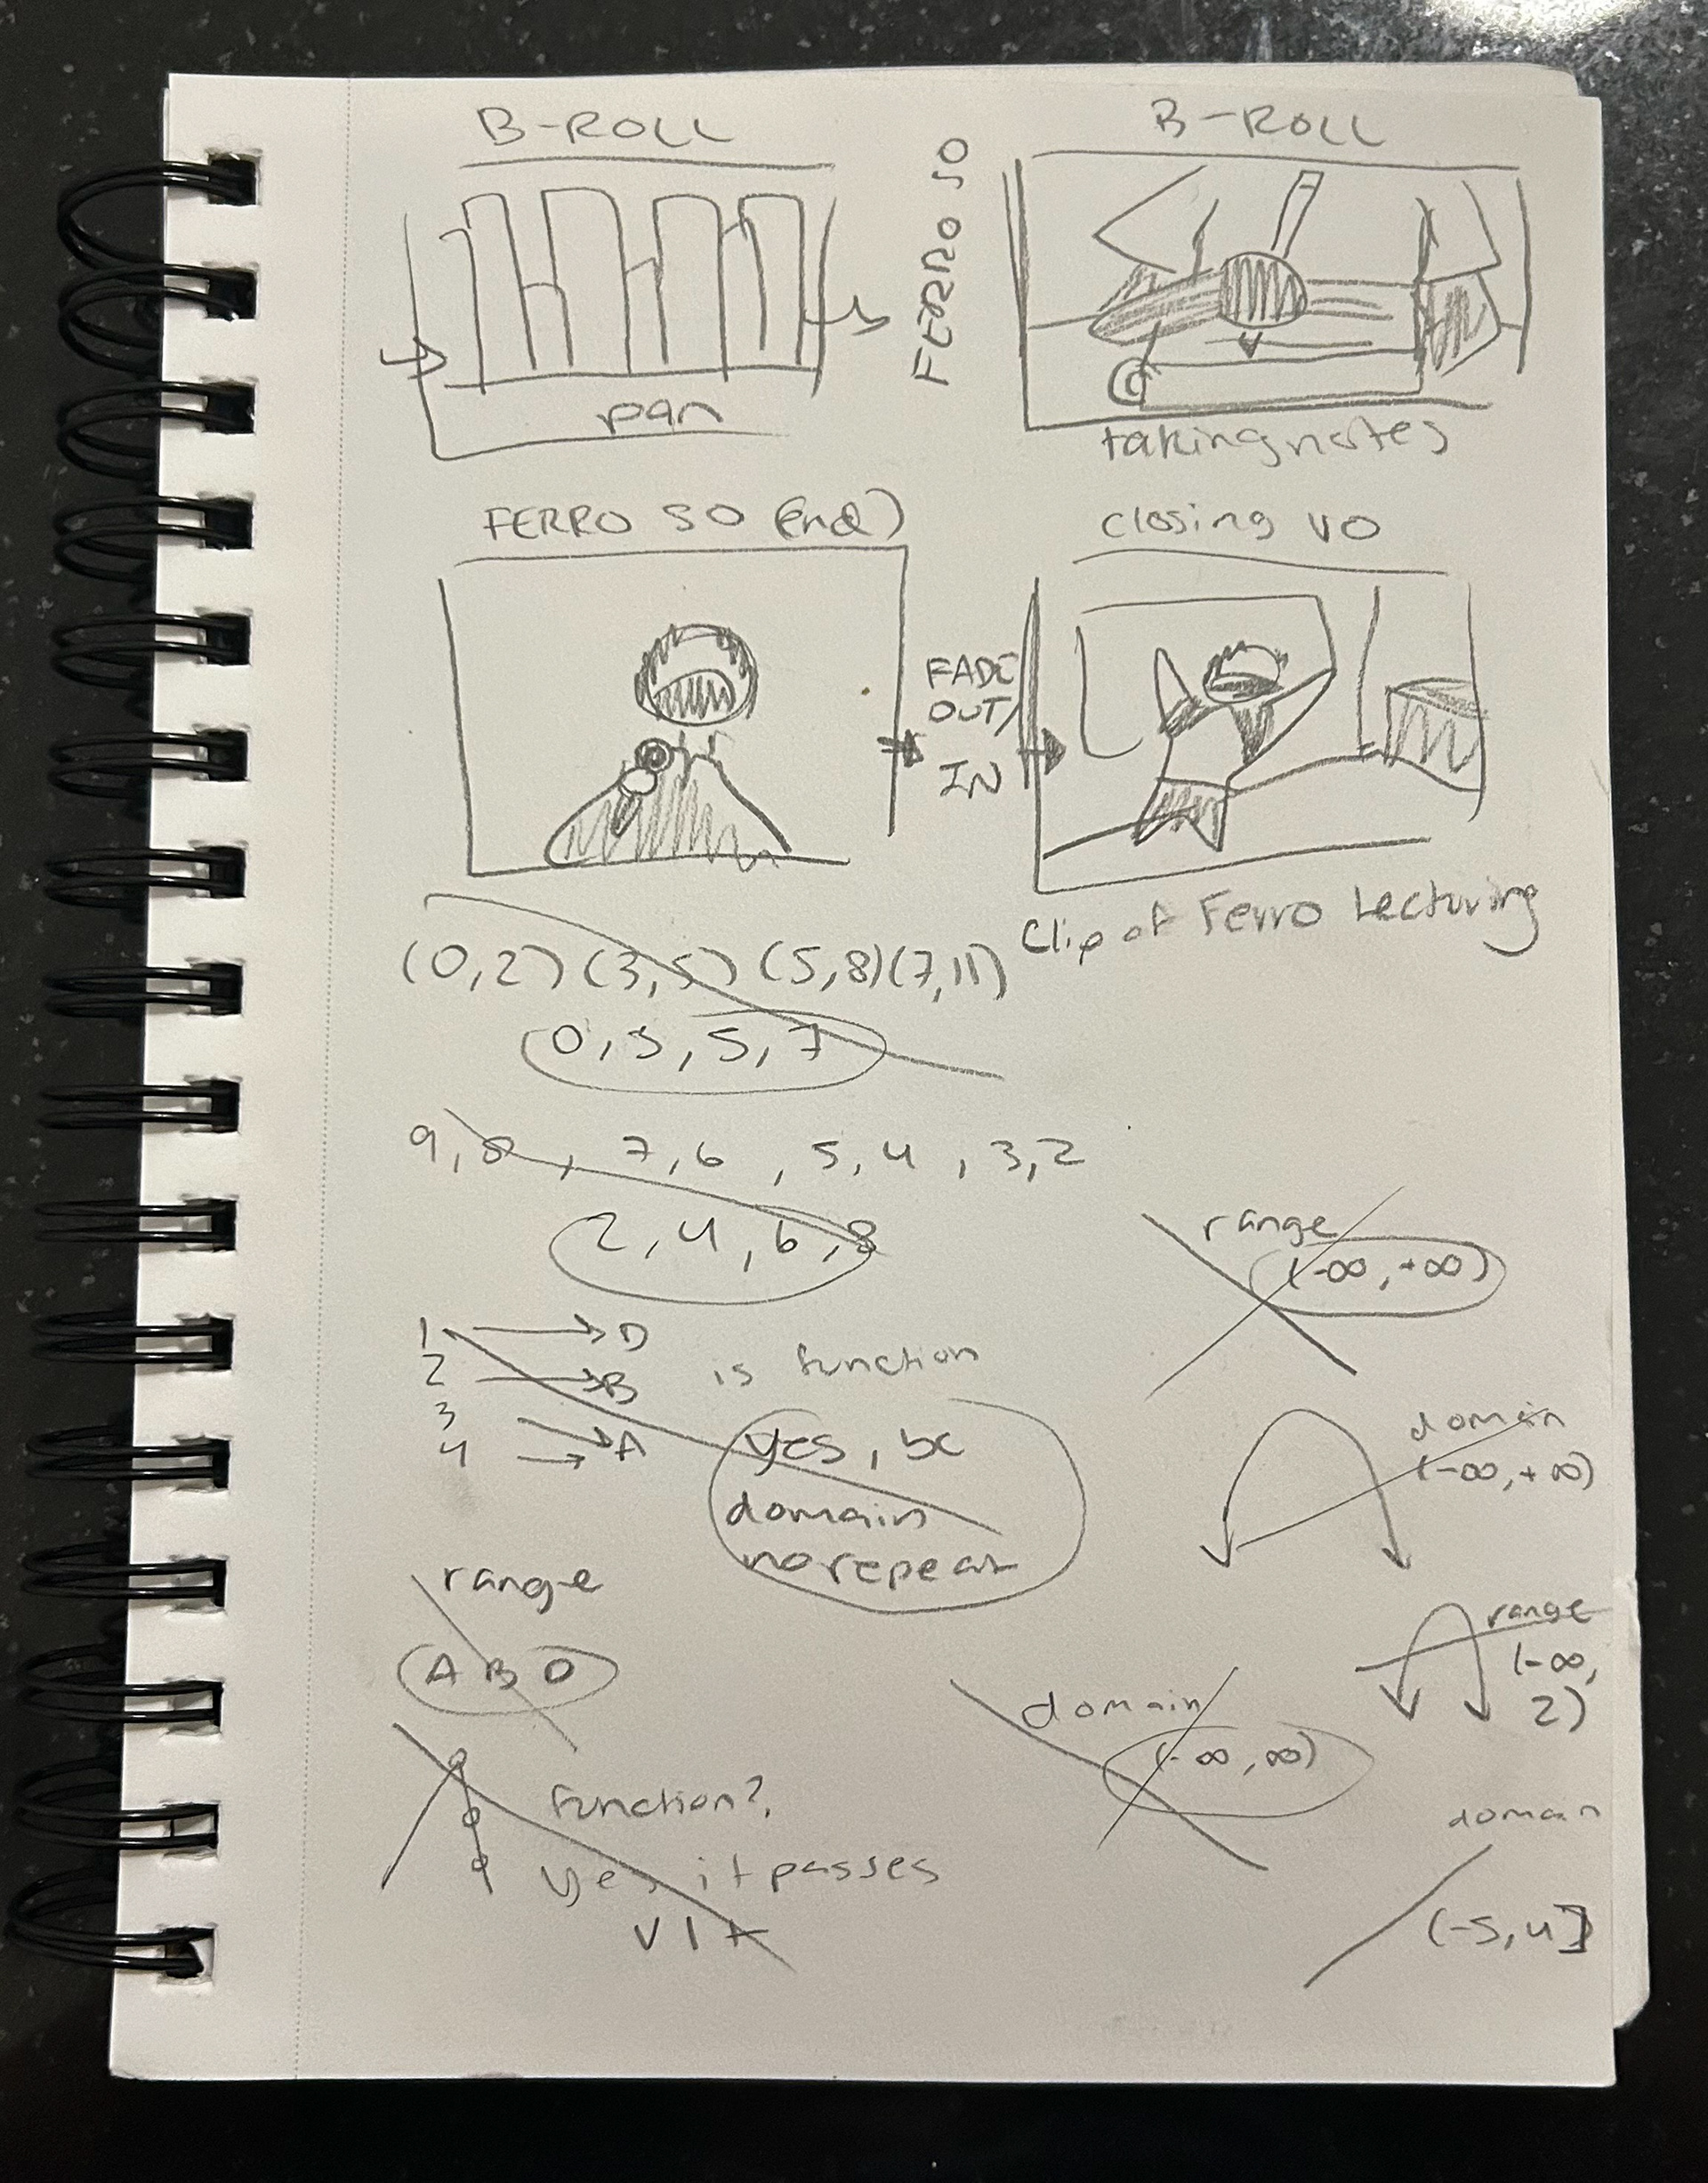 B-ROLL
pan
FERRO SO
B-ROLL
taking notes
FERRO SO (end)
FADE
OUT/
IN
closing VO
Clip of Ferro Lecturing
(0,2) (3,5) (5,8) (7,11)
0, 3, 5, 7
9,8, 7,6, 5,4, 3,2
2, 4, 6, 8
range
(-∞, +∞)
1 → D
2 → B
3
4 → A
is function
yes, bc
domain
no repeat
domain
(-∞, +∞)
range
A B D
range
(-∞,
2)
domain
(-∞, ∞)
function?
yes, it passes
VLT
domain
(-5, 4]